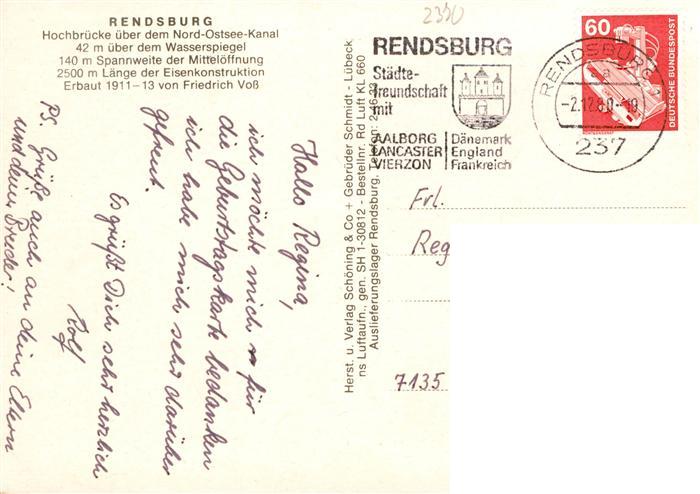 RENDSBURG
Hochbrücke über dem Nord-Ostsee-Kanal
42 m über dem Wasserspiegel
140 m Spannweite der Mittelöffnung
2500 m Länge der Eisenkonstruktion
Erbaut 1911–13 von Friedrich Voß
Hallo Regina,
ich möchte mich für
die Geburtstagskarte bedanken
ich habe mich sehr darüber
gefreut.
Es grüßt Dich sehr herzlich
Rolf
PS. Grüße auch an deine Eltern
und dein Bruder!
Herst. u. Verlag Schöning & Co + Gebrüder Schmidt - Lübeck
ns Luftaufn., gen. SH 1-30812 - Bestellnr. Rd Luft KL 660
Auslieferungslager Rendsburg, Telefon:
2330
RENDSBURG
Städte-
freundschaft
mit
AALBORG Dänemark
LANCASTER England
VIERZON Frankreich
RENDSBURG
-2.12.80.-10
237
60
DEUTSCHE BUNDESPOST
Frl.
Reg
7135